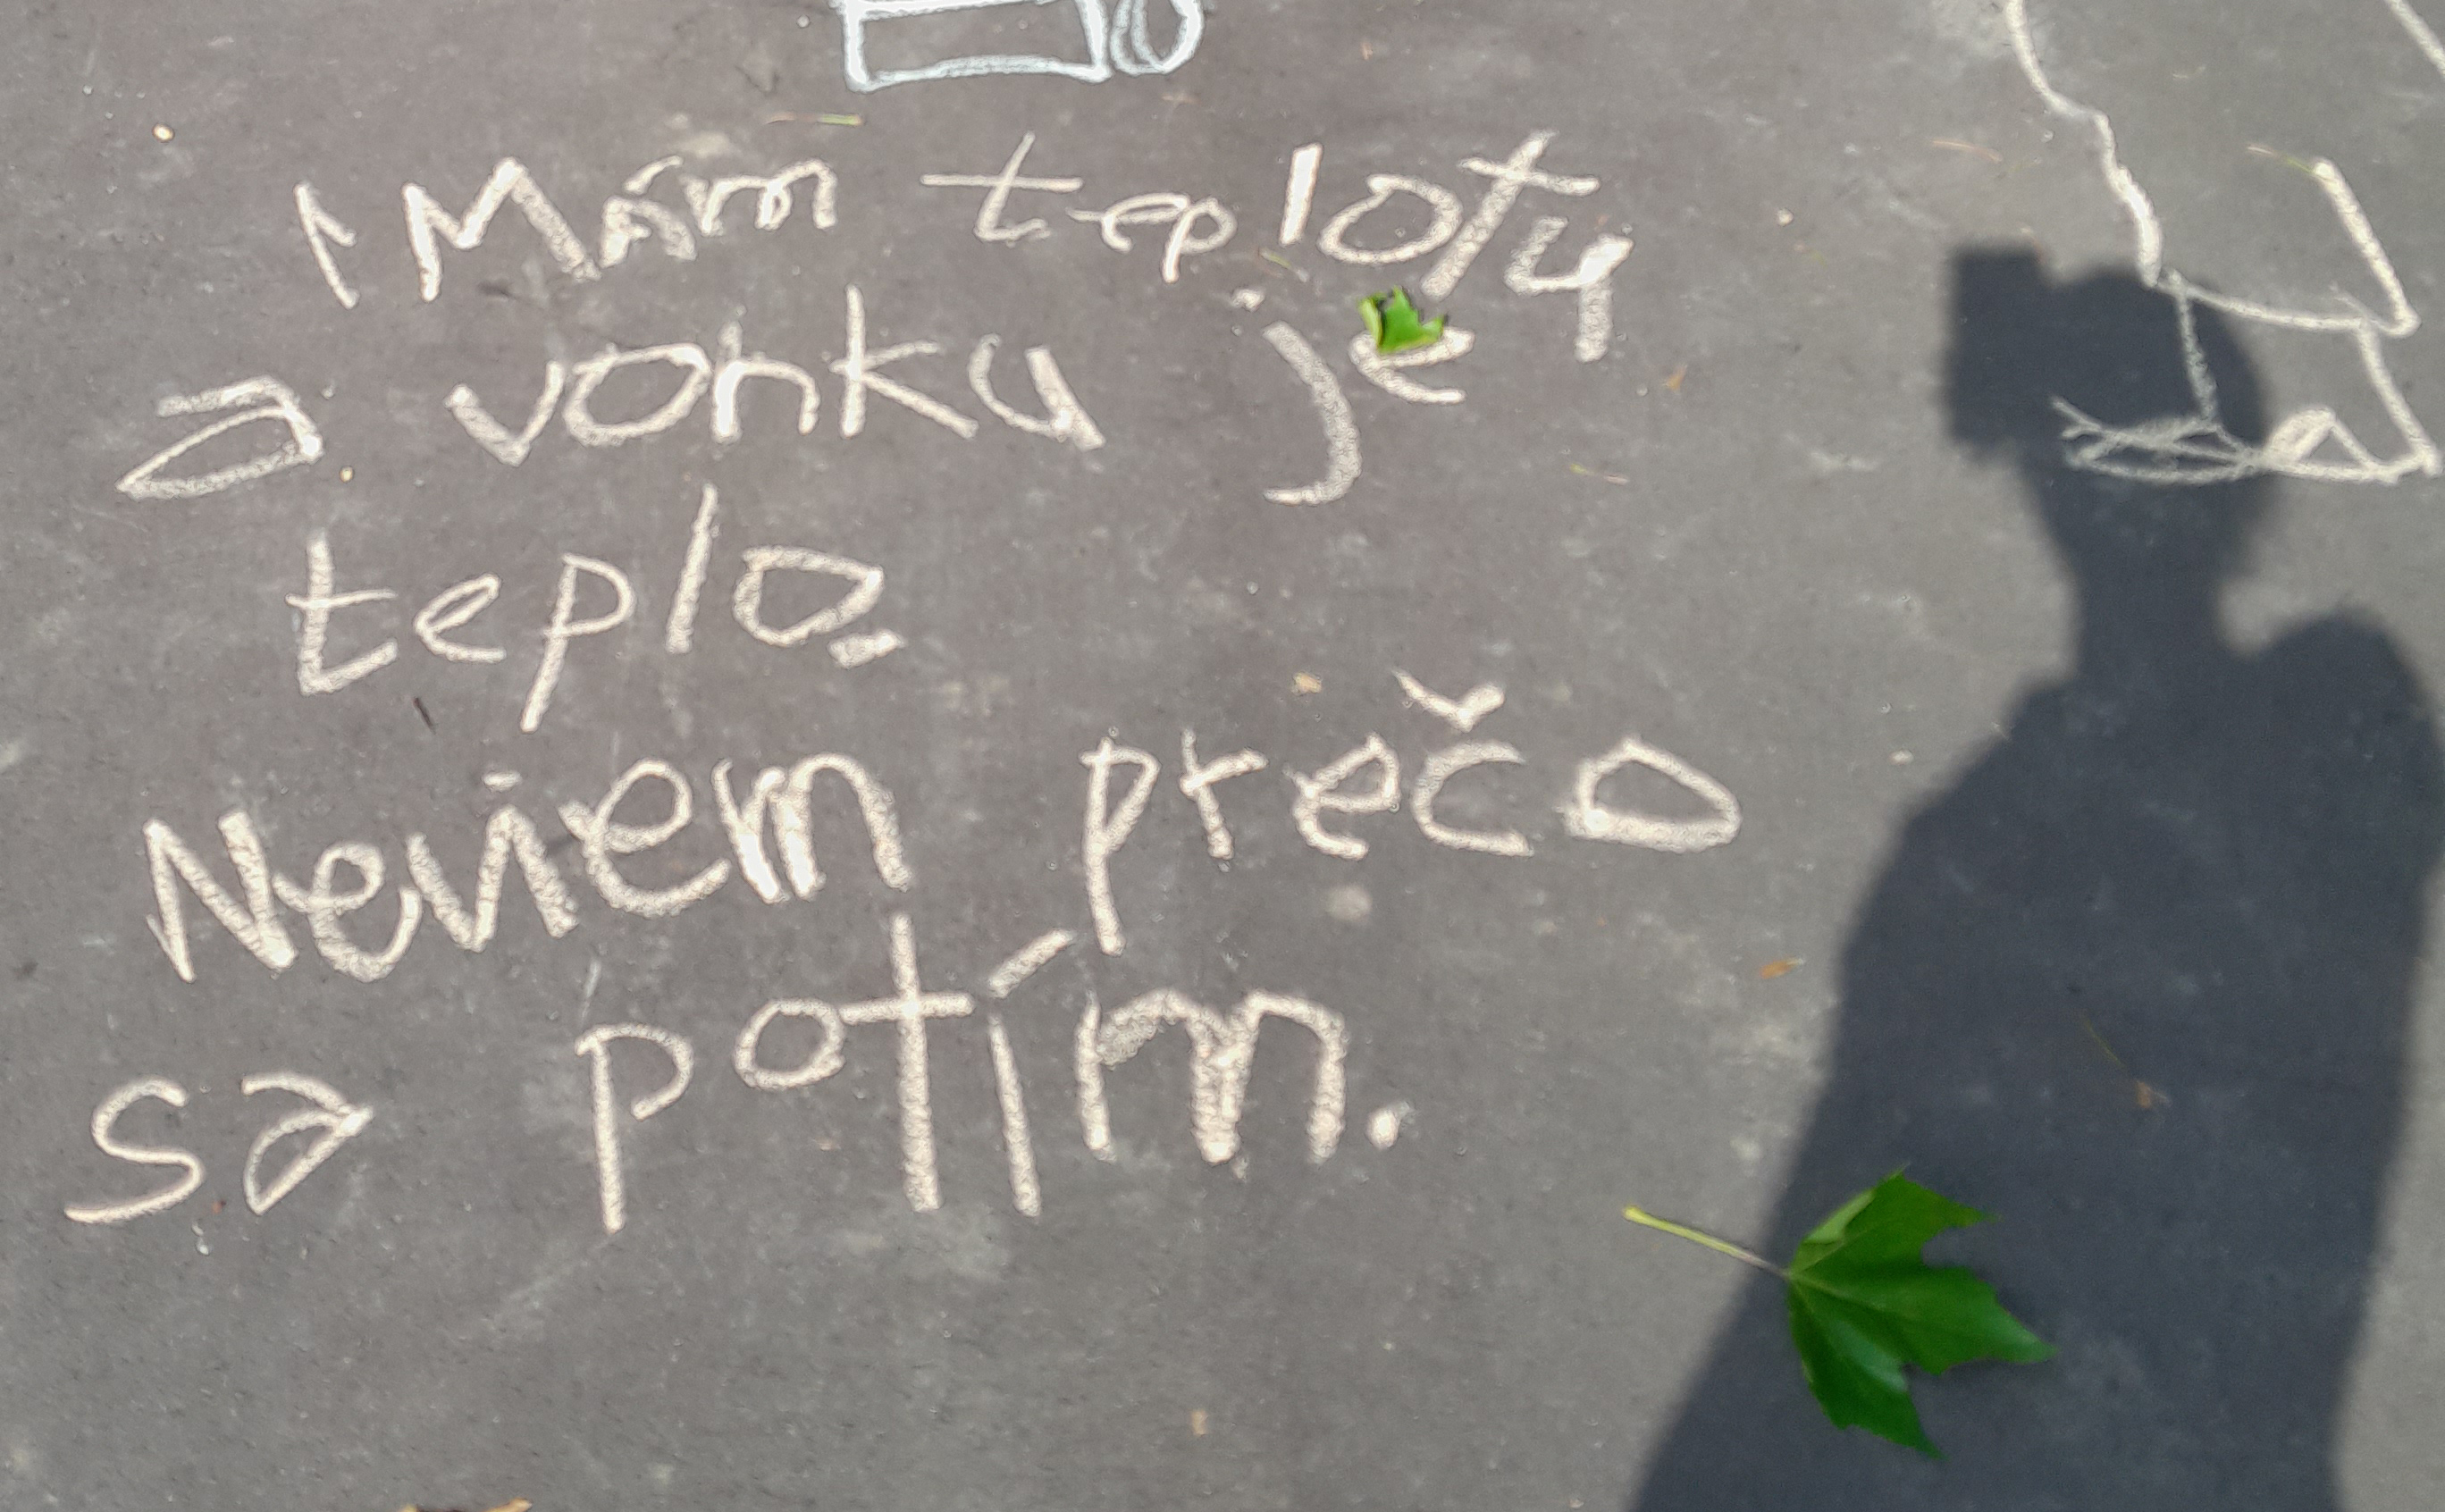 Mám teploty
a vonku je
teplo.
Neviem prečo
sa potím.